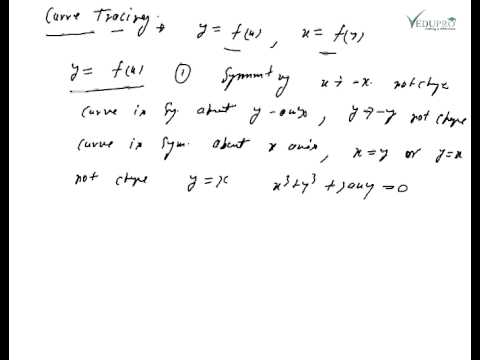 VEDUPRO
Curve Tracing → y = f(x), x = f(y)
y = f(x) ① Symmetry x → -x not chge
curve is Sy. about y-axis, y → -y not chge
curve is Sym. about x axis, x = y or y = x
not chge y = x x³+y³+3axy=0